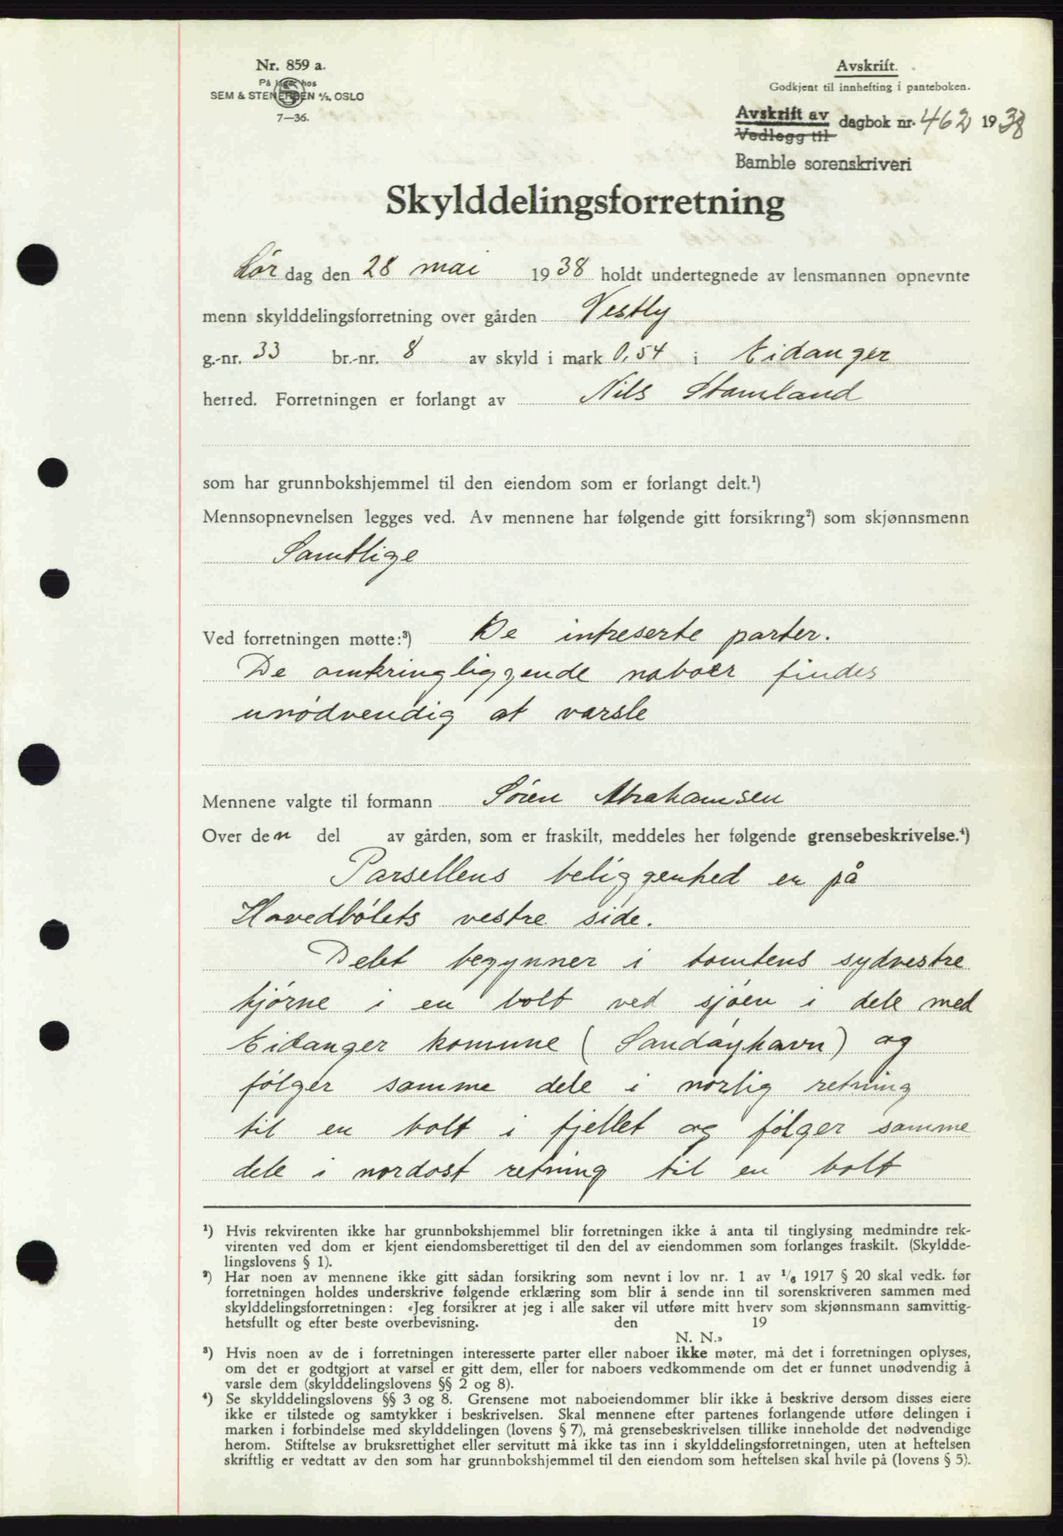 Nr. 859 a.
På lager hos
SEM & STENERSEN A/S, OSLO
7—36.
Avskrift.
Godkjent til innhefting i panteboken.
Avskrift av
Vedlegg til
dagbok nr. 462 1938
Bamble sorenskriveri
Skylddelingsforretning
Lør dag den 28 mai 1938 holdt undertegnede av lensmannen opnevnte
menn skylddelingsforretning over gården Vestly
g.-nr. 33 br.-nr. 8 av skyld i mark 0,54 i Eidanger
herred. Forretningen er forlangt av Nils Stamland
som har grunnbokshjemmel til den eiendom som er forlangt delt.¹)
Mennsopnevnelsen legges ved. Av mennene har følgende gitt forsikring²) som skjønnsmenn
Samtlige
Ved forretningen møtte:³) De intreserte parter.
De omkringliggende naboer findes
unødvendig at varsle
Mennene valgte til formann Sören Abrahamsen
Over den del av gården, som er fraskilt, meddeles her følgende grensebeskrivelse.⁴)
Parsellens beliggenhed er på
Hovedbølets vestre side.
Delet begynner i tomtens sydvestre
hjørne i en bolt ved sjøen i dele med
Eidanger komune ( Sandøyhavn) og
følger samme dele i norlig retning
til en bolt i fjellet og følger samme
dele i nordost retning til en bolt
¹) Hvis rekvirenten ikke har grunnbokshjemmel blir forretningen ikke å anta til tinglysing medmindre rek-
virenten ved dom er kjent eiendomsberettiget til den del av eiendommen som forlanges fraskilt. (Skyldde-
lingslovens § 1).
²) Har noen av mennene ikke gitt sådan forsikring som nevnt i lov nr. 1 av 1/6 1917 § 20 skal vedk. før
forretningen holdes underskrive følgende erklæring som blir å sende inn til sorenskriveren sammen med
skylddelingsforretningen: «Jeg forsikrer at jeg i alle saker vil utføre mitt hverv som skjønnsmann samvittig-
hetsfullt og efter beste overbevisning. den 19
N. N.»
³) Hvis noen av de i forretningen interesserte parter eller naboer ikke møter, må det i forretningen oplyses,
om det er godtgjort at varsel er gitt dem, eller for naboers vedkommende om det er funnet unødvendig å
varsle dem (skylddelingslovens §§ 2 og 8).
⁴) Se skylddelingslovens §§ 3 og 8. Grensene mot naboeiendommer blir ikke å beskrive dersom disses eiere
ikke er tilstede og samtykker i beskrivelsen. Skal mennene efter partenes forlangende utføre delingen i
marken i forbindelse med skylddelingen (lovens § 7), må grensebeskrivelsen tillike inneholde det nødvendige
herom. Stiftelse av bruksrettighet eller servitutt må ikke tas inn i skylddelingsforretningen, uten at heftelsen
skriftlig er vedtatt av den som har grunnbokshjemmel til den eiendom som heftelsen skal hvile på (lovens § 5).